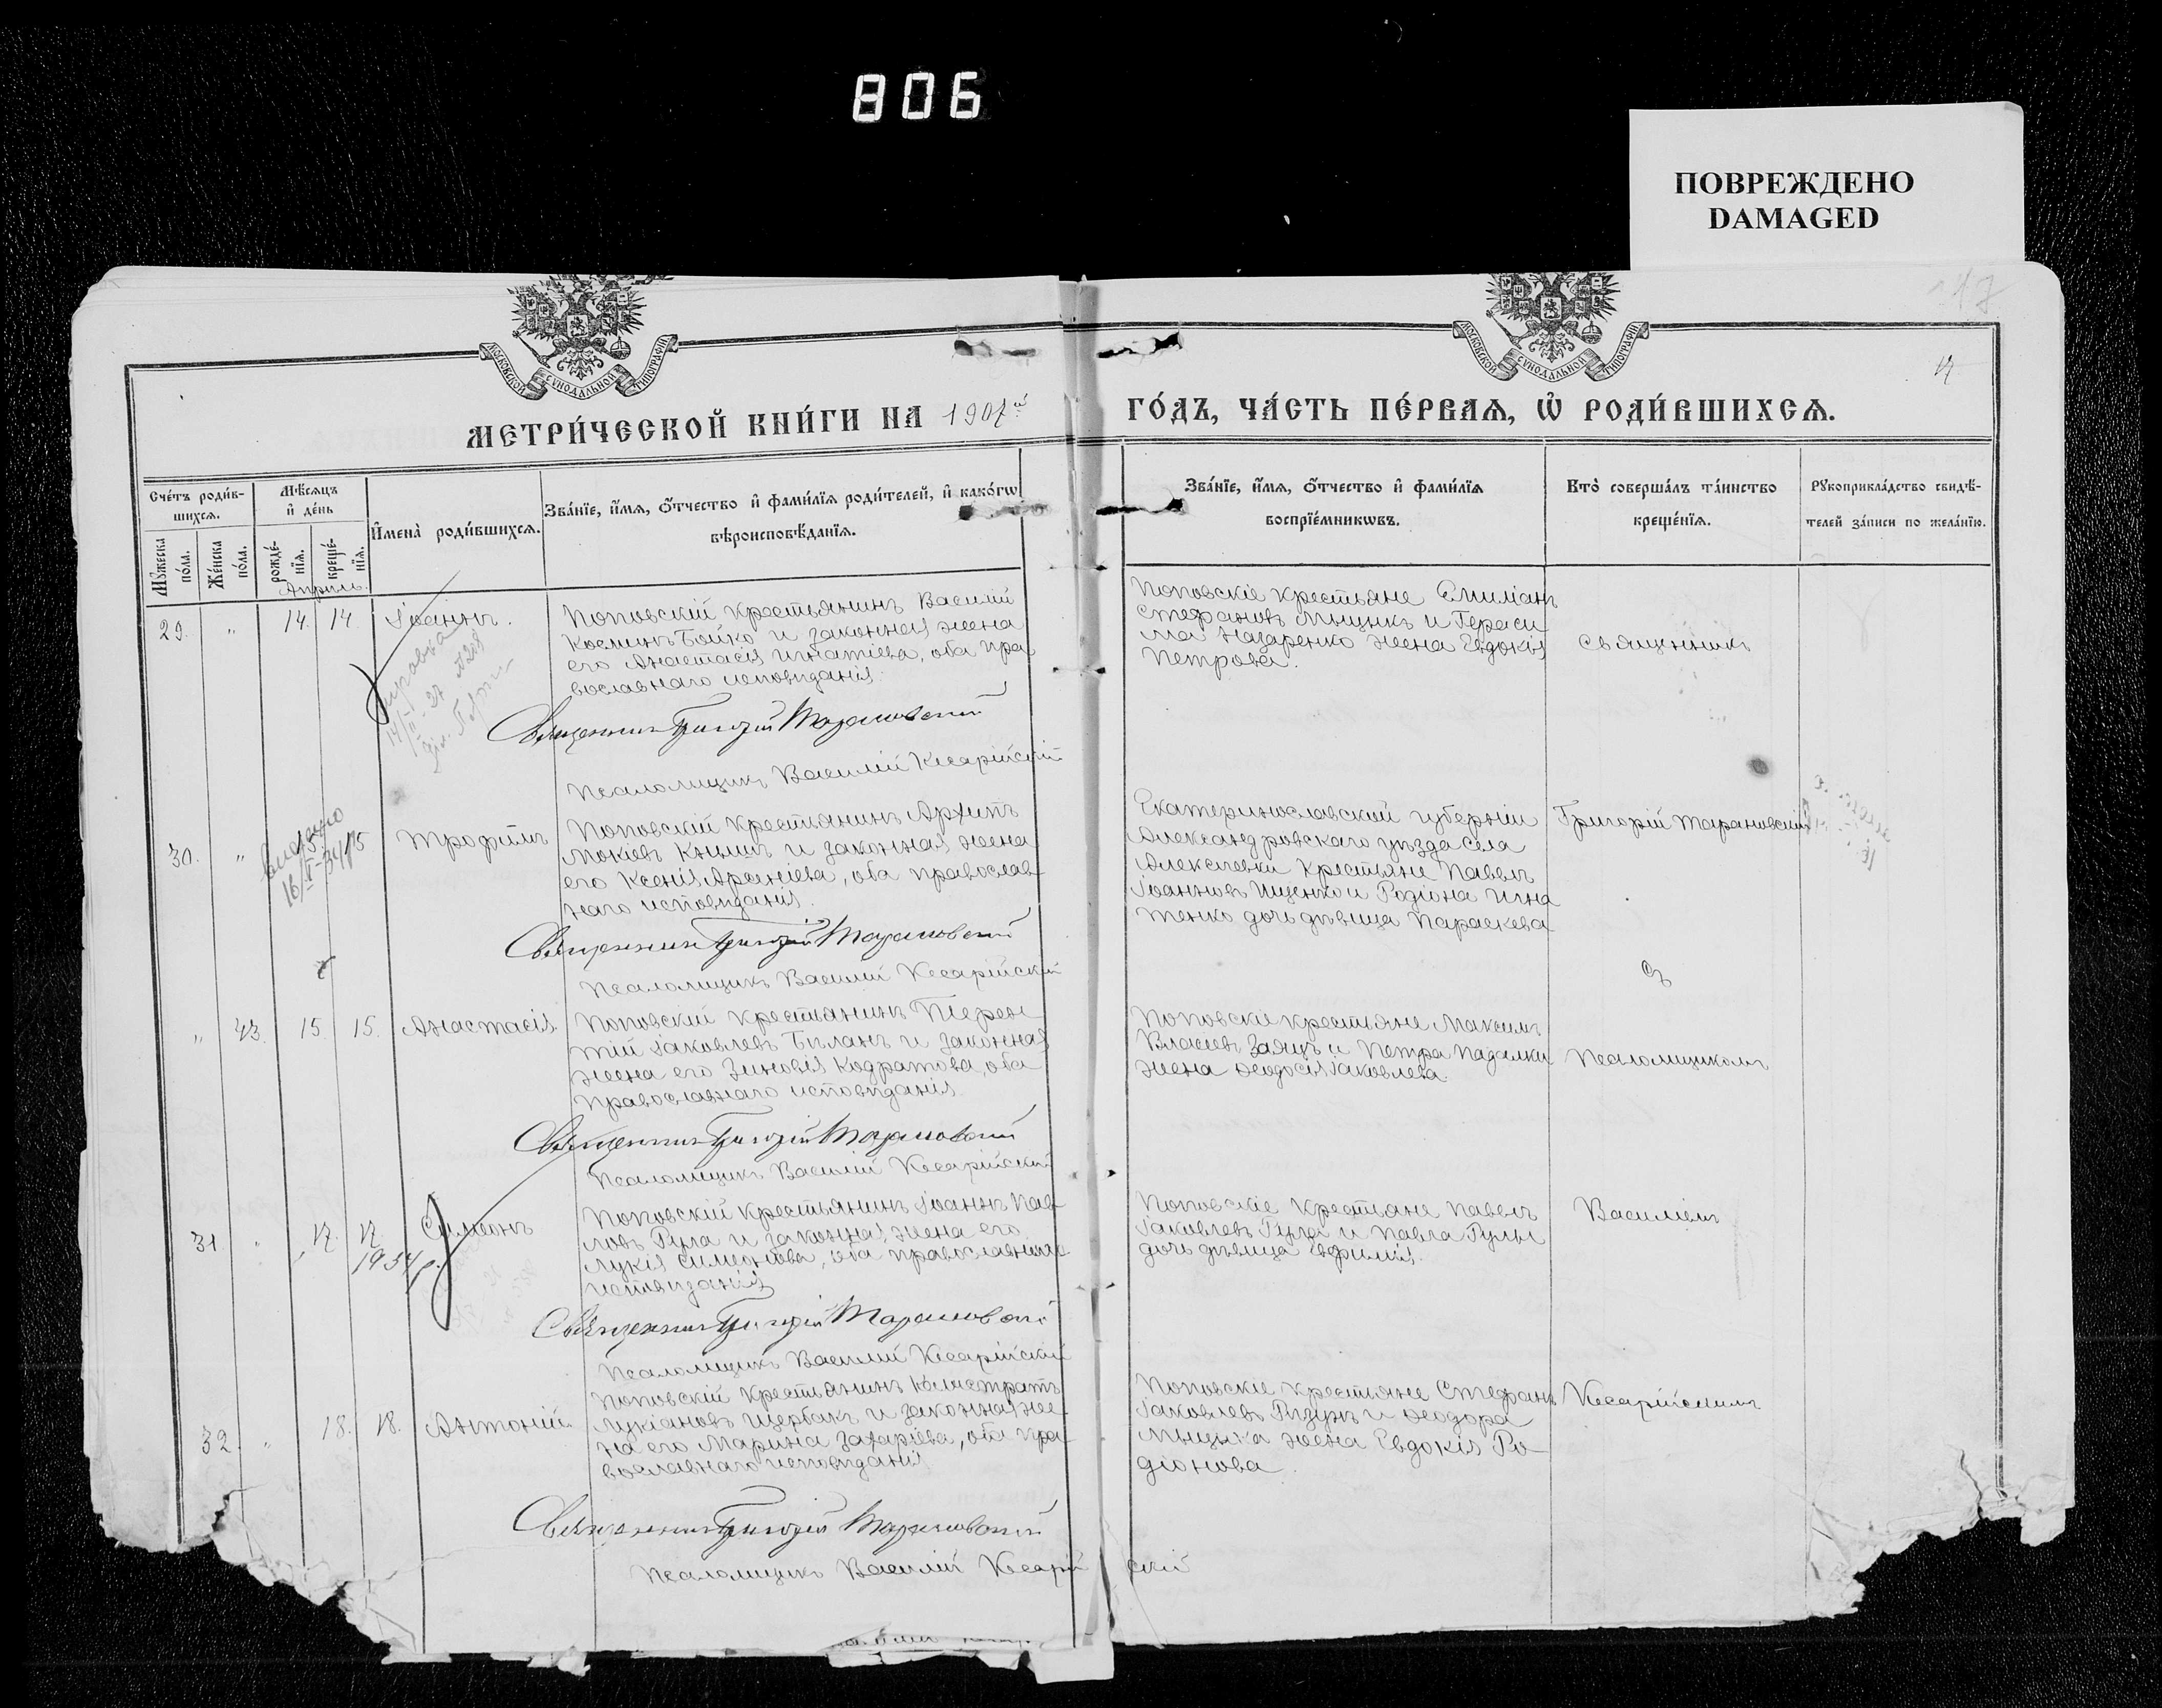 806
ПОВРЕЖДЕНО
DAMAGED
17
МОСКОВСКОЙ СѴНОДАЛЬНОЙ ТИПОГРАФІИ
МОСКОВСКОЙ СѴНОДАЛЬНОЙ ТИПОГРАФІИ
МЕТРИ́ЧЕСКОЙ КНИ́ГИ НА 1907й ГО́ДЪ, ЧА́СТЬ ПЕ́РВАЯ, Ѡ҆ РОДИ́ВШИХСѦ.
Сче́тъ роди́в-
шихсѧ.
Мѣ́сѧцъ
и҆ де́нь
И҆мена̀ роди́вшихсѧ.
Зва́нїе, и҆́мѧ, ѻ҆́тчество и҆ фами́лїѧ роди́телей, и҆ како́гѡ
вѣроисповѣ́данїѧ.
Мꙋ́жеска
по́ла.
Же́нска
по́ла.
рожде́-
нїѧ.
креще́-
нїѧ.
Зва́нїе, и҆́мѧ, ѻ҆́тчество и҆ фами́лїѧ
воспрїе́мникѡвъ.
Кто̀ соверша́лъ та́инство
креще́нїѧ.
Рꙋкоприкла́дство свидѣ́-
телей за́писи по жела́нїю.
Апрѣль.
29. " 14. 14. Іоаннъ.
Поповскій крестьянинъ Василій
Косминъ Бойко и законная жена
его Анастасія Игнатіева, оба пра
вославнаго исповѣданія.
Священникъ Григорій Тарановскій
Псаломщикъ Василій Кесарійскій
Поповскіе крестьяне Емиліанъ
Стефановъ Мыцыкъ и Гераси
ма Назаренко жена Евдокія
Петрова.
Священникъ
30. " 15 Трофимъ
16/V-34
Поповскій крестьянинъ Архипъ
Мокіевъ Кнышъ и законная жена
его Ксенія Арсеніева, оба православ
наго исповѣданія.
Священникъ Григорій Тарановскій
Псаломщикъ Василій Кесарійскій
Екатеринославской губерніи
Александровскаго уѣзда села
Алексѣевки крестьяне Павелъ
Іоанновъ Ищенко и Родіона Игна
тенко дочь дѣвица Параскева
Григорій Тарановскій
съ
" 43. 15. 15. Анастасія
Поповскій крестьянинъ Терен
тій Іаковлевъ Біланъ и законная
жена его Зиновія Кодратова, оба
православнаго исповѣданія
Священникъ Григорій Тарановскій
Псаломщикъ Василій Кесарійскій
Поповскіе крестьяне Максимъ
Власіевъ Заяцъ и Петра Падалки
жена Ѳеодосія Іаковлева.
Псаломщикомъ
31. " 17. 17 Симеонъ
1934 р.
Поповскій крестьянинъ Іоаннъ Пав
ловъ Гула и законная жена его
Лукія Симеонова, оба православнаго
исповѣданія
Священникъ Григорій Тарановскій
Псаломщикъ Василій Кесарійскій
Поповскіе крестьяне Павелъ
Іаковлевъ Гула и Павла Гулы
дочь дѣвица Евфимія.
Василіемъ
32. " 18. 18. Антоній
Поповскій крестьянинъ Калистратъ
Лукіановъ Щербакъ и законная же
на его Марина Захаріева, оба пра
вославнаго исповѣданія
Священникъ Григорій Тарановскій
Псаломщикъ Василій Кесарійскій
Поповскіе крестьяне Стефанъ
Іаковлевъ Гизунъ и Ѳеодора
Мыцыка жена Евдокія Ро-
діонова.
Кесарійскимъ